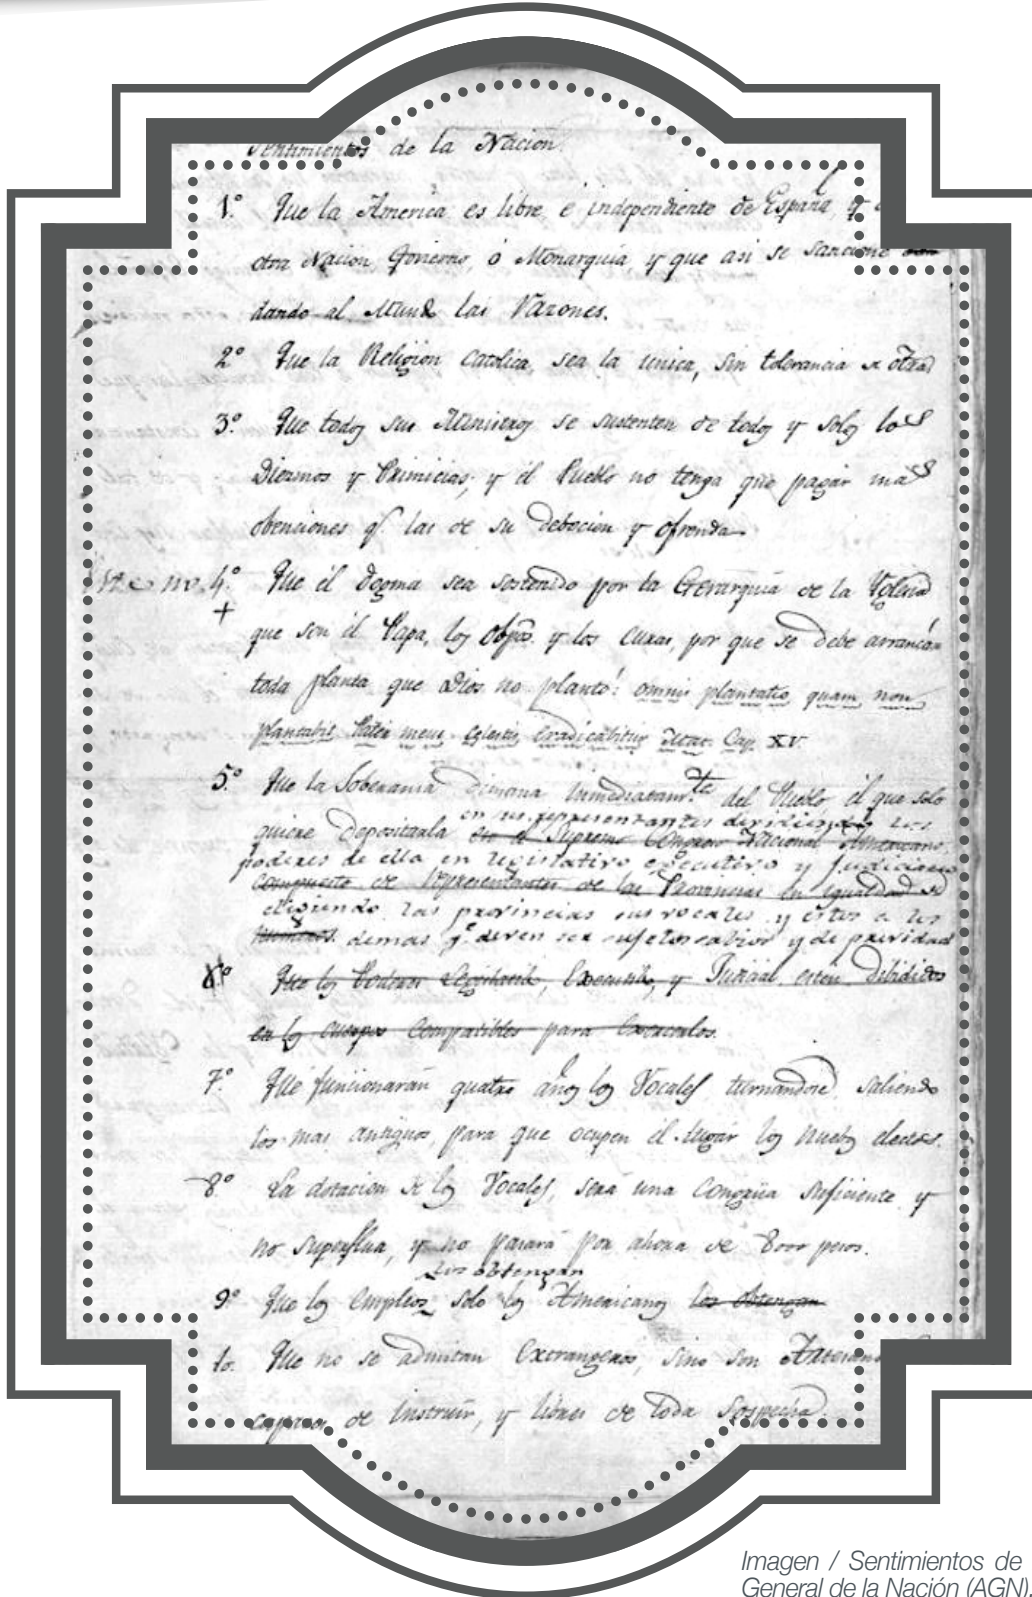 Sentimientos de la Nacion.
1.º Que la America es libre é independiente de España, y
otra Nacion, Govierno, ó Monarquia, y que asi se sancione
dando al Mundo las Razones.
2.º Que la Religion Catolica, sea la unica, sin tolerancia de otra
3.º Que todos sus Ministros se sustenten de todos y solos los
Diezmos y Primicias, y el Pueblo no tenga que pagar mas
obenciones q.e las de su debocion y ofrenda
4.º Que el dogma sea sostenido por la Gerarquia de la Yglesia
que son el Papa, los Obpos. y los curas, por que se debe arrancar
toda planta que Dios no plantó: omnis plantatio quam non
plantabit Pater meus Celestis Eradicabitur Mat. Cap. XV
5.º Que la Soberania dimana inmediatam.te del Pueblo el que solo
en sus representantes dividiendo los
quiere depositarla en el Supremo Congreso Nacional Americano
poderes de ella en legislativo executivo y judiciario
compuesto de representantes de las Provincias en igualdad de
eligiendo las provincias sus vocales y estos a los
numeros. demas q.e deven ser sujetos sabios y de providad
6.º Que los Poderes Legislativo, Executivo, y Judicial esten dibididos
en los cuerpos compatibles para exercerlos.
7.º Que funcionarán quatro años los Vocales turnandose saliendo
los mas antiguos, para que ocupen el lugar los nuebos electos.
8.º La dotacion de los Vocales, será una congrua suficiente y
no superflua, y no pasará por ahora de 8000 pesos.
los obtengan
9.º Que los empleos solo los Americanos los obtengan
10. Que no se admitan Extrangeros, sino son Artesanos
capaces de instruir, y libres de toda Sospecha.
Imagen / Sentimientos de
General de la Nación (AGN).